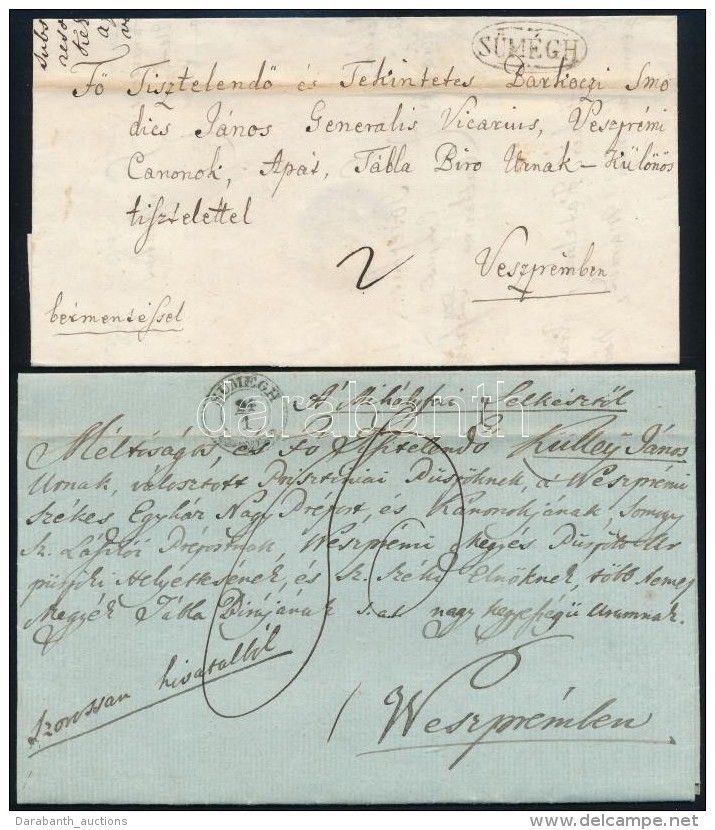 subs
reso
SÜMÉGH
Fő Tisztelendő és Tekintetes Barkoczi Smo
dics János Generalis Vicarius, Veszprémi
Canonok, Apát, Tábla Biro Urnak – Különös
tisztelettel
2
Veszprémben
bérmentéssel
SÜMEGH
24
1
A' Mihályfai Lelkésztől
darabanth
Méltóságos és Fő Tisztelendő Kulley János
Urnak, választott Prisztinai Püspöknek, a Weszprémi
Székes Egyház Nagy Prépost, és Kanonokjának, Somogy
Sz. Lászlói Prépostnak, Weszprémi Megyés Püspök Ur
püspöki Helyettesének, és Sz. Széki Elnöknek, több Nemes
Megyék Tábla Birájának s. at. nagy kegyességü Uramnak.
Szorossan hivatalból
Weszprémben
Darabanth_auctions
www.delcampe.net